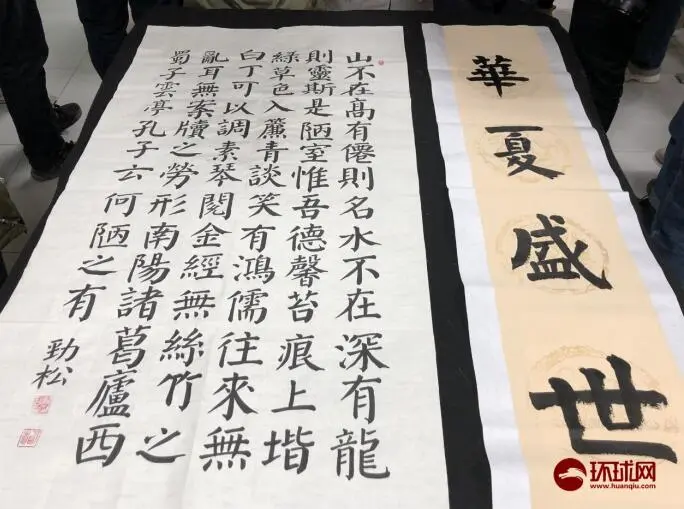 華夏盛世
山不在高有僊則名水不在深有龍
則靈斯是陋室惟吾德馨苔痕上堦
綠草色入簾青談笑有鴻儒往來無
白丁可以調素琴閱金經無絲竹之
亂耳無案牘之勞形南陽諸葛廬西
蜀子雲亭孔子云何陋之有
勁松
环球网
www.huanqiu.com